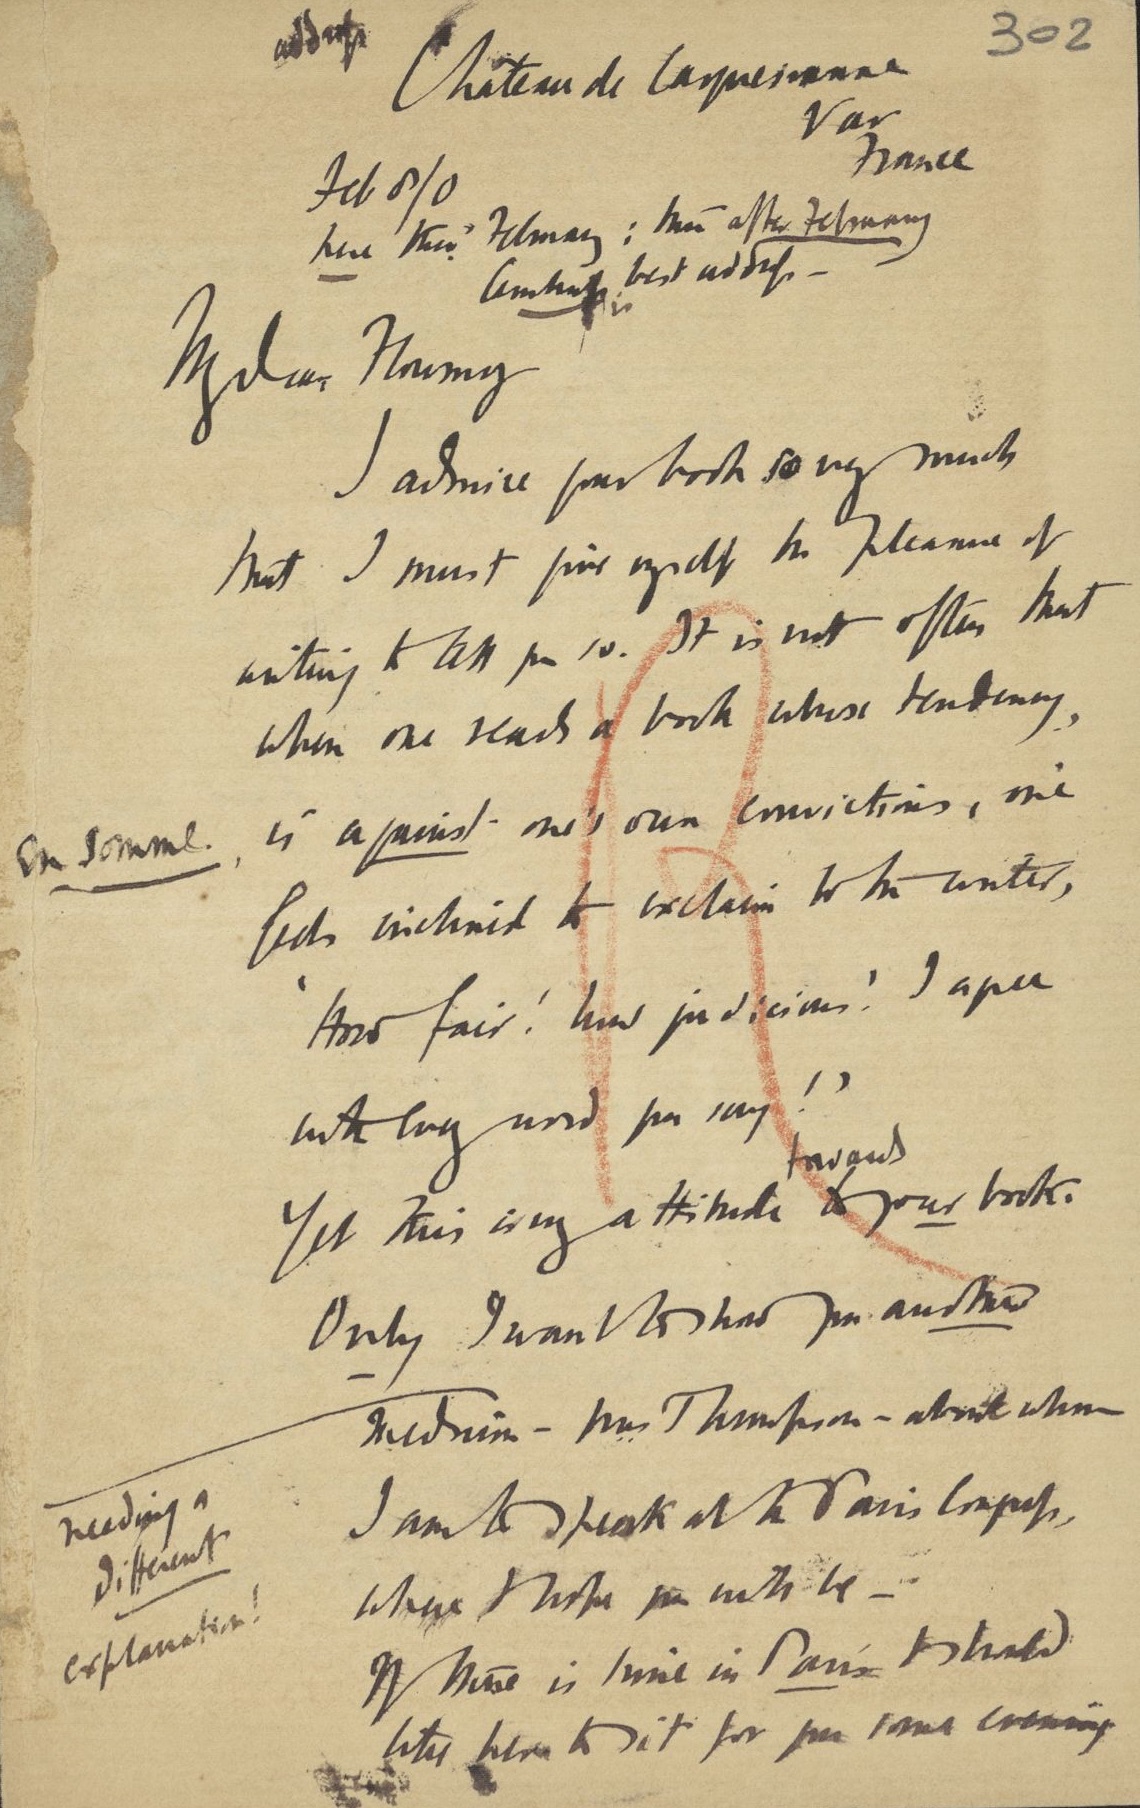 302
address
Château de Carqueiranne
Var
France
Feb 8/0
here thro' February; then after February
Cambridge is best address -
My dear Flournoy
I admire your book so very much
that I must give myself the pleasure of
writing to tell you so. It is not often that
when one reads a book whose tendency,
En somme.
, is against one's own convictions, one
feels inclined to exclaim to the writer,
'How fair! how judicious! I agree
with every word you say!'
towards
Yet this is my attitude to your book.
Only I want to show you another
medium - Mrs Thompson - about whom
I am to speak at the Paris Congress,
needing a
different
explanation!
where I hope you will be -
If there is time in Paris I should
like her to sit for you some evening